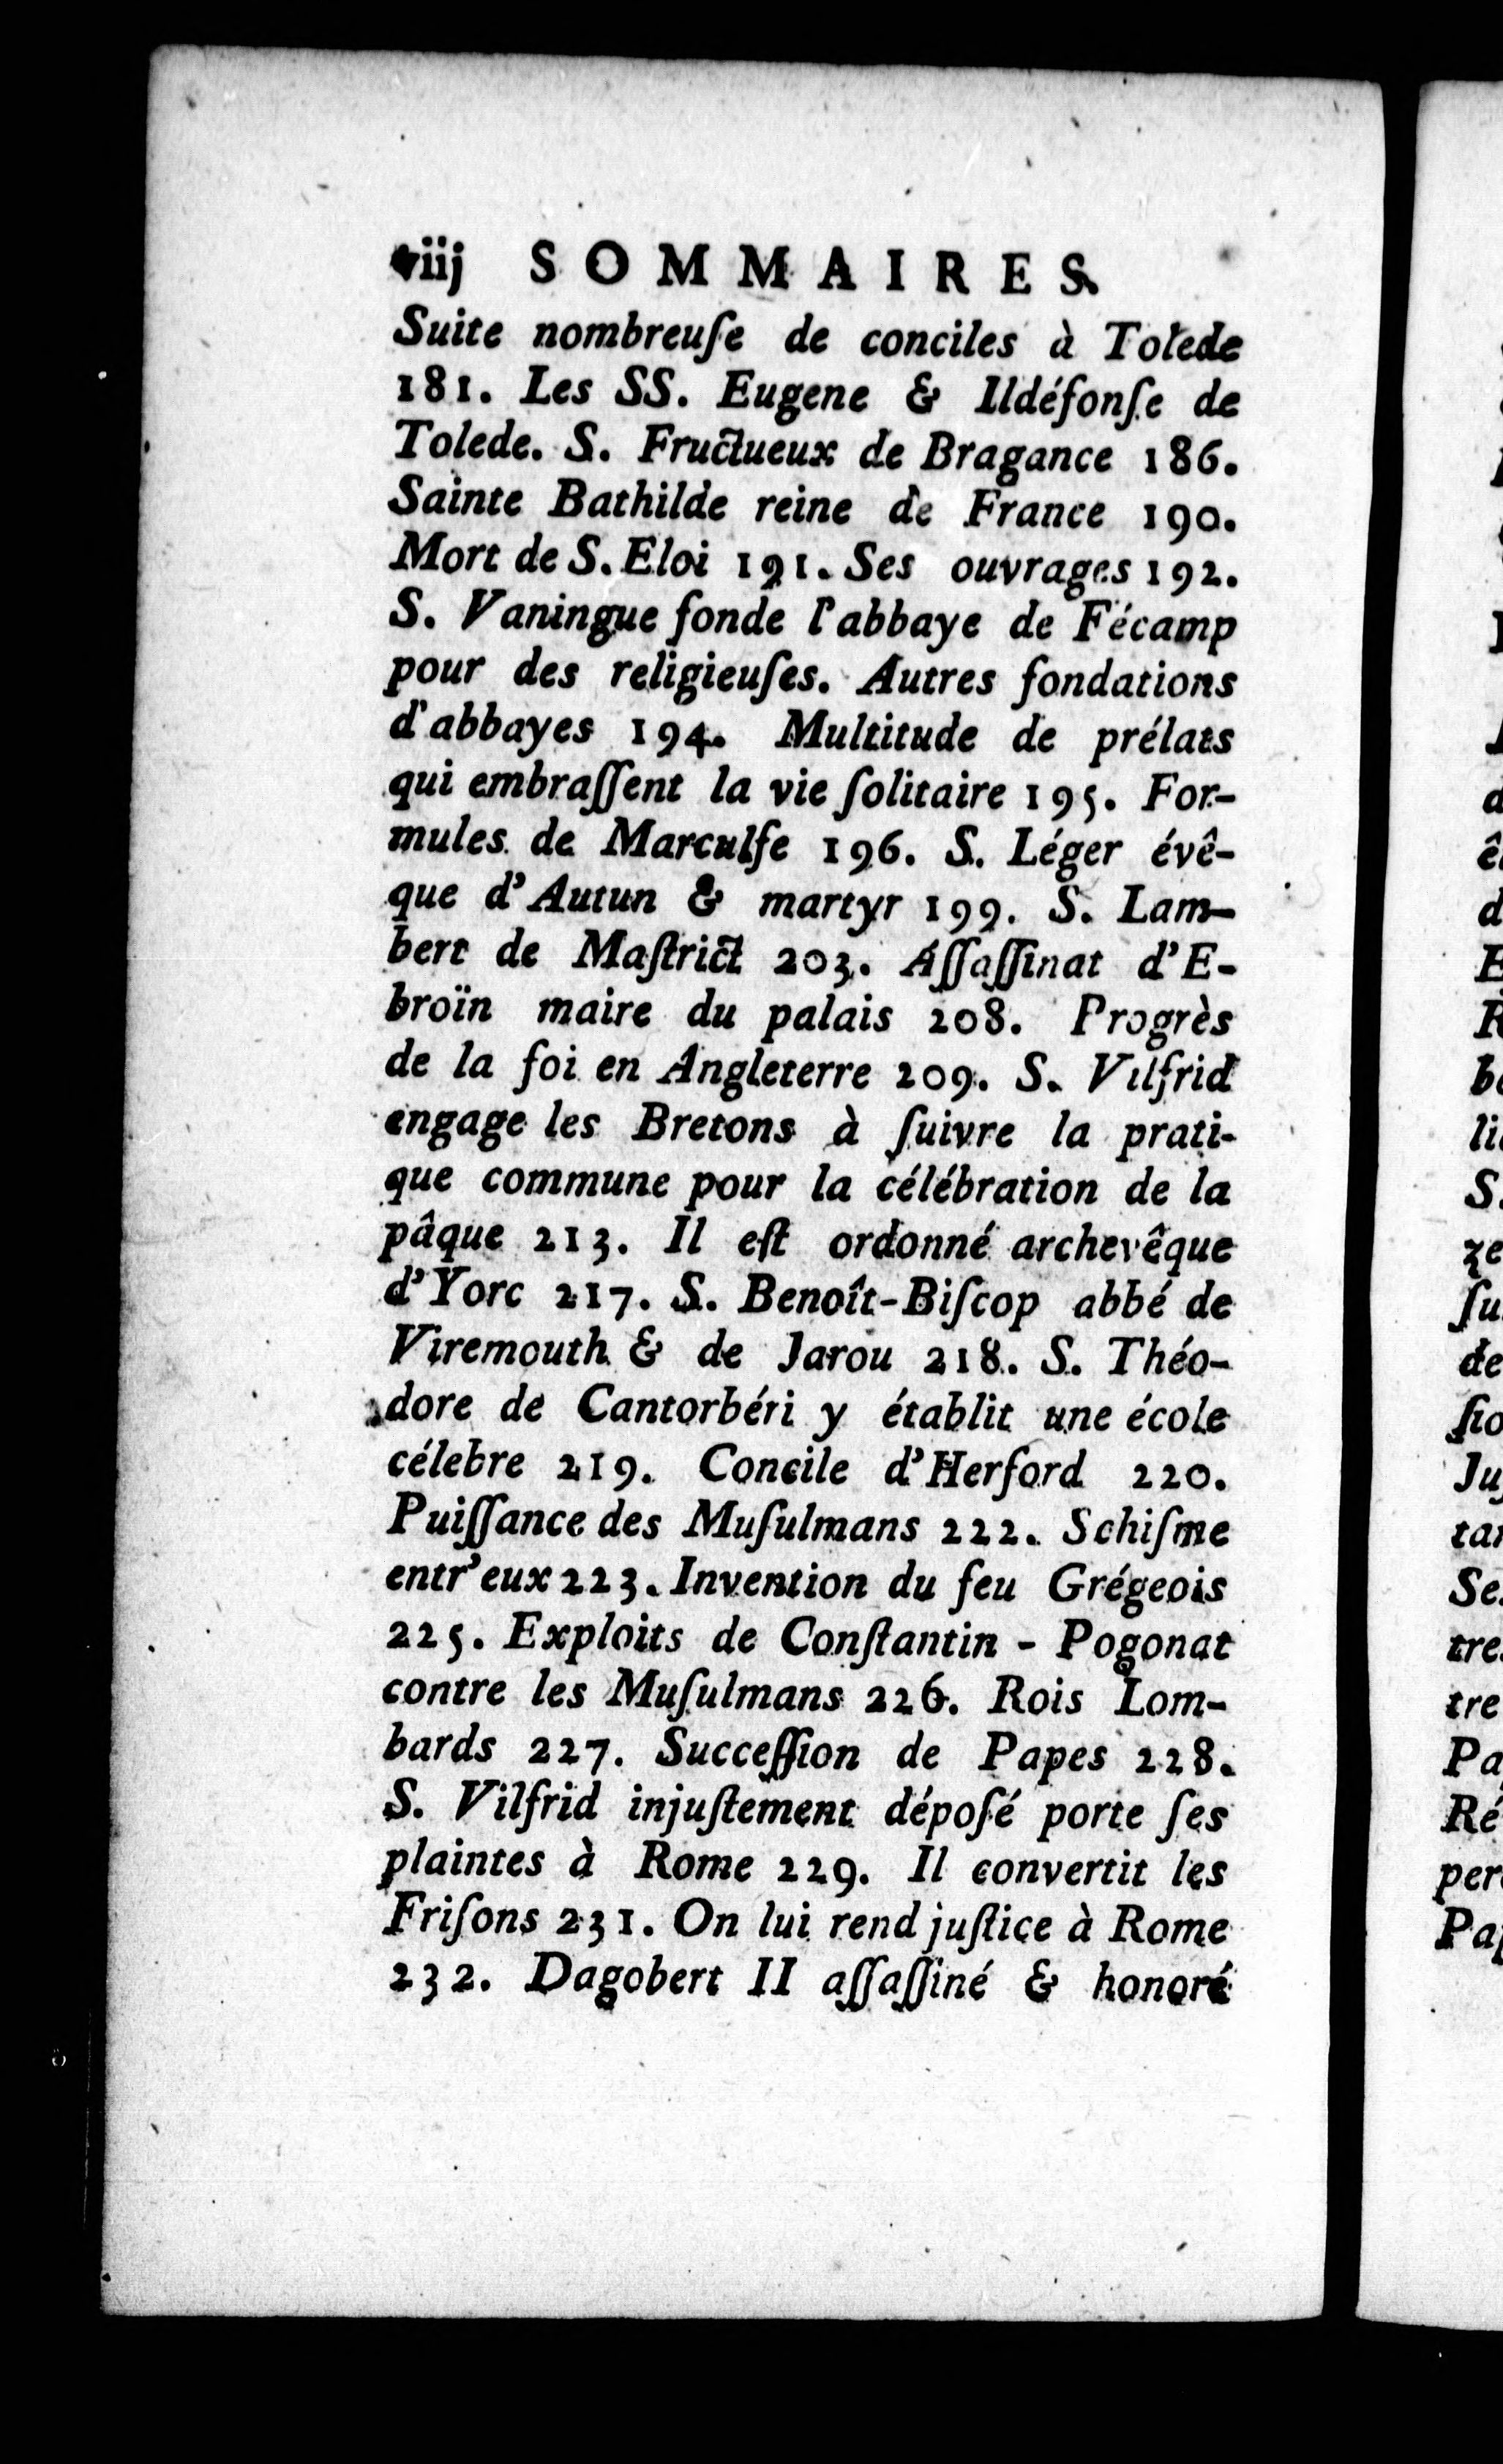 viij SOMMAIRES.
Suite nombreuſe de conciles à Tolede
181. Les SS. Eugene & Ildéfonſe de
Tolede. S. Fructueux de Bragance 186.
Sainte Bathilde reine de France 190.
Mort de S. Eloi 191. Ses ouvrages 192.
S. Vaningue fonde l'abbaye de Fécamp
pour des religieuſes. Autres fondations
d'abbayes 194. Multitude de prélats
qui embraſſent la vie ſolitaire 195. For-
mules de Marculfe 196. S. Léger évê-
que d'Autun & martyr 199. S. Lam-
bert de Maſtrict 203. Aſſaſſinat d'E-
broïn maire du palais 208. Progrès
de la foi en Angleterre 209. S. Vilfrid
engage les Bretons à ſuivre la prati-
que commune pour la célébration de la
pâque 213. Il eſt ordonné archevêque
d'Yorc 217. S. Benoît-Biſcop abbé de
Viremouth & de Jarou 218. S. Théo-
dore de Cantorbéri y établit une école
célebre 219. Concile d'Herford 220.
Puiſſance des Muſulmans 222. Schiſme
entr'eux 223. Invention du feu Grégeois
225. Exploits de Conſtantin - Pogonat
contre les Muſulmans 226. Rois Lom-
bards 227. Succeſſion de Papes 228.
S. Vilfrid injuſtement dépoſé porte ſes
plaintes à Rome 229. Il convertit les
Friſons 231. On lui rend juſtice à Rome
232. Dagobert II aſſaſſiné & honoré